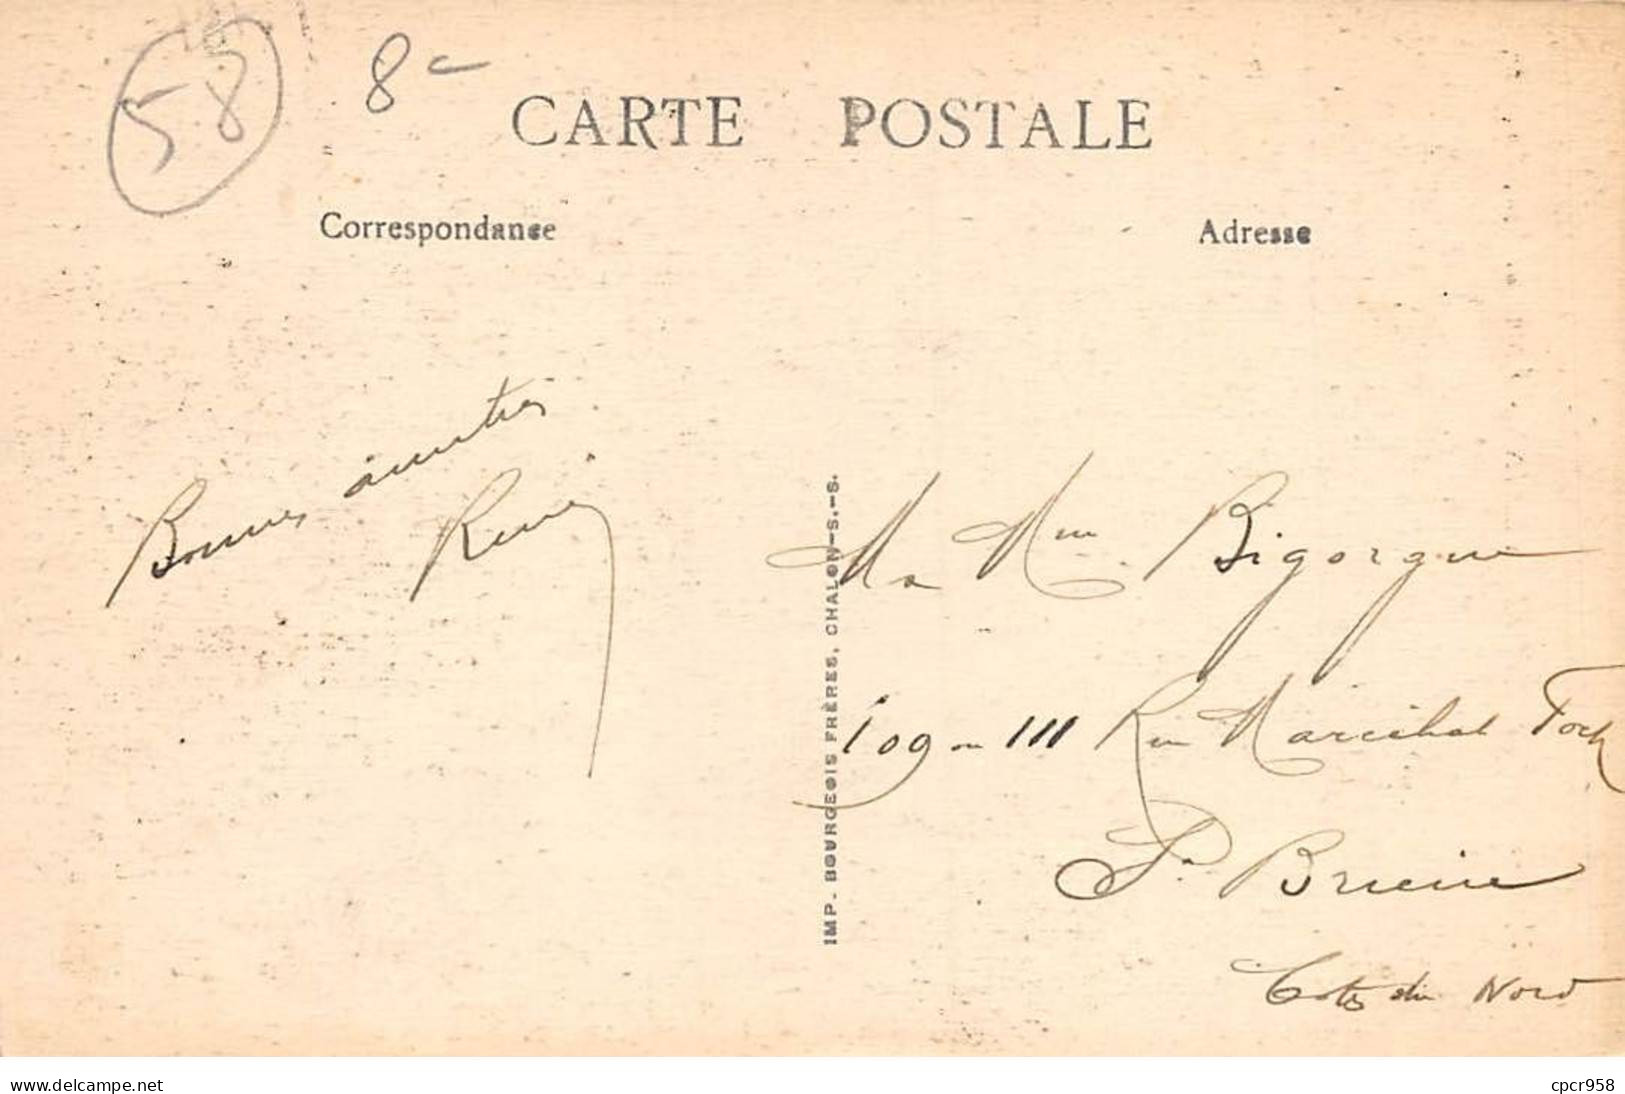 58
8c
CARTE POSTALE
Correspondance
Adresse
Bonnes amitiés
René
IMP. BOURGEOIS FRÈRES, CHALON-S.-S.
M. Mme Bigorgne
109 ou 111 Rue Maréchal Foch
St Brieuc
Cotes du Nord
www.delcampe.net
cpcr958